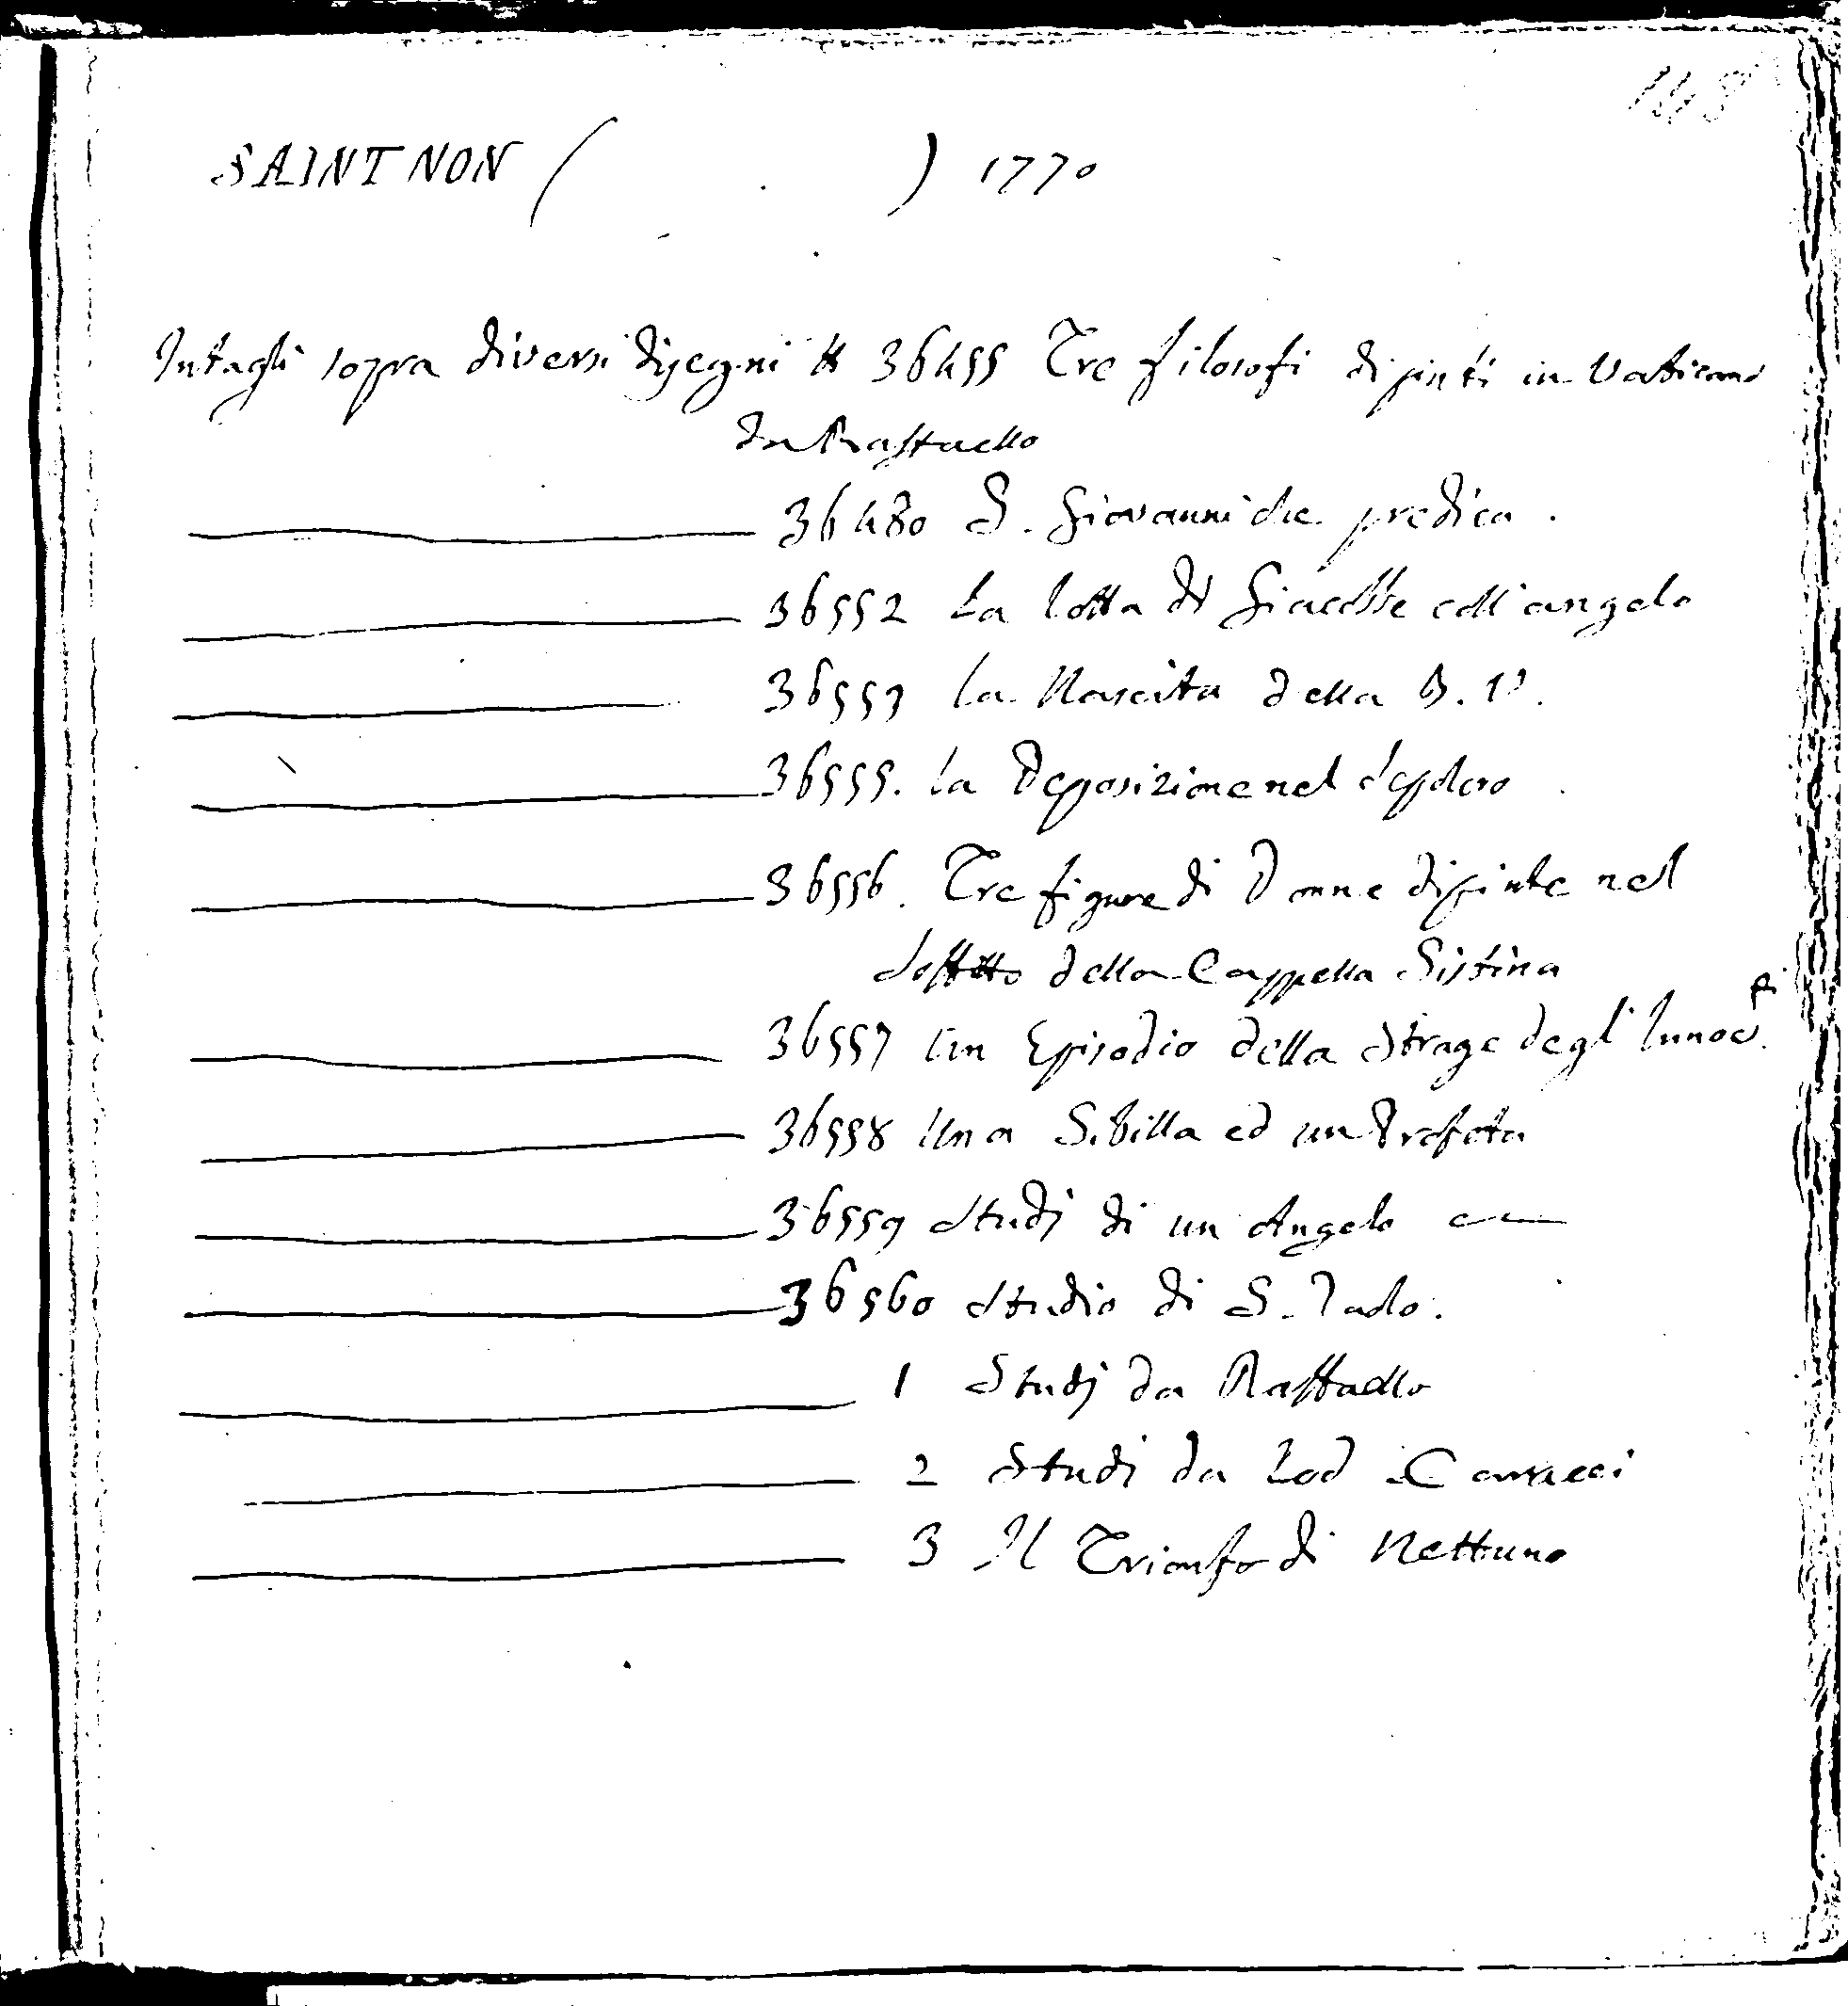 148
SAINT NON ( ) 1770
Intagli sopra diversi disegni 36455 Tre filosofi dipinti in Vaticano
da Raffaello
36480 S. Giovanni che predica.
36552 La lotta di Giacobbe coll'angelo
36553 La Nascita della B. V.
36555. La Deposizione nel Sepolcro
36556. Tre figure di Donne dipinte nel
Soffitto della Cappella Sistina
36557 Un Episodio della Strage degl'Innoc.ti
36558 Una Sibilla ed un Profeta
36559 Studj di un Angelo
36560 Studio di S. Paolo.
1 Studj da Raffaello
2 Studj da Lod Carracci
3 Il Trionfo di Nettuno